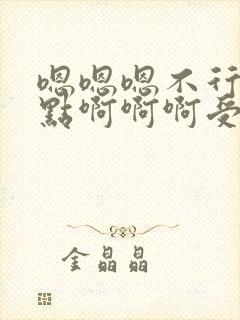 嗯嗯嗯不行
點啊啊啊受
金晶晶